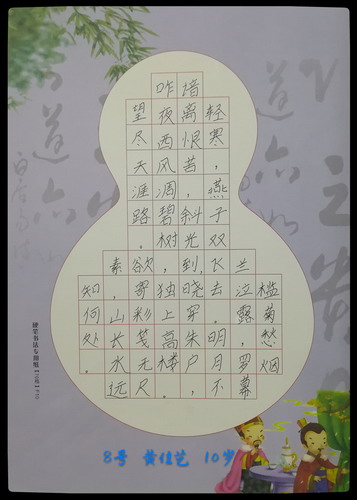 槛菊愁烟
兰泣露，罗幕
轻寒，燕子双飞去。明月不
谙离恨苦，斜光到晓穿朱户，
咋夜西风凋碧树，独上高楼。
望尽天涯路。欲寄彩笺无尺
素，山长水远
知何处。
硬笔书法专用纸
8号 黄佳艺 10岁